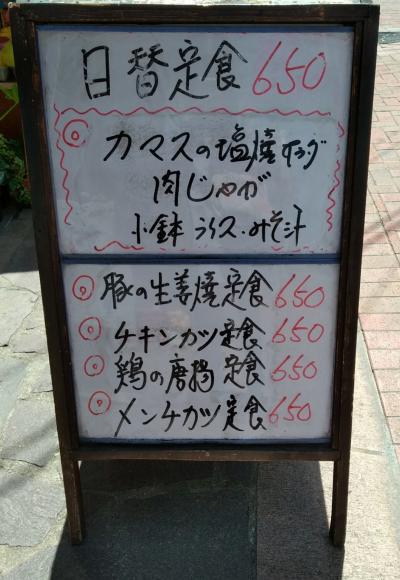 日替定食 650
カマスの塩焼
肉じゃが
小鉢 ライス・みそ汁
豚の生姜焼定食 650
チキンカツ定食 650
鶏の唐揚定食 650
メンチカツ定食 650